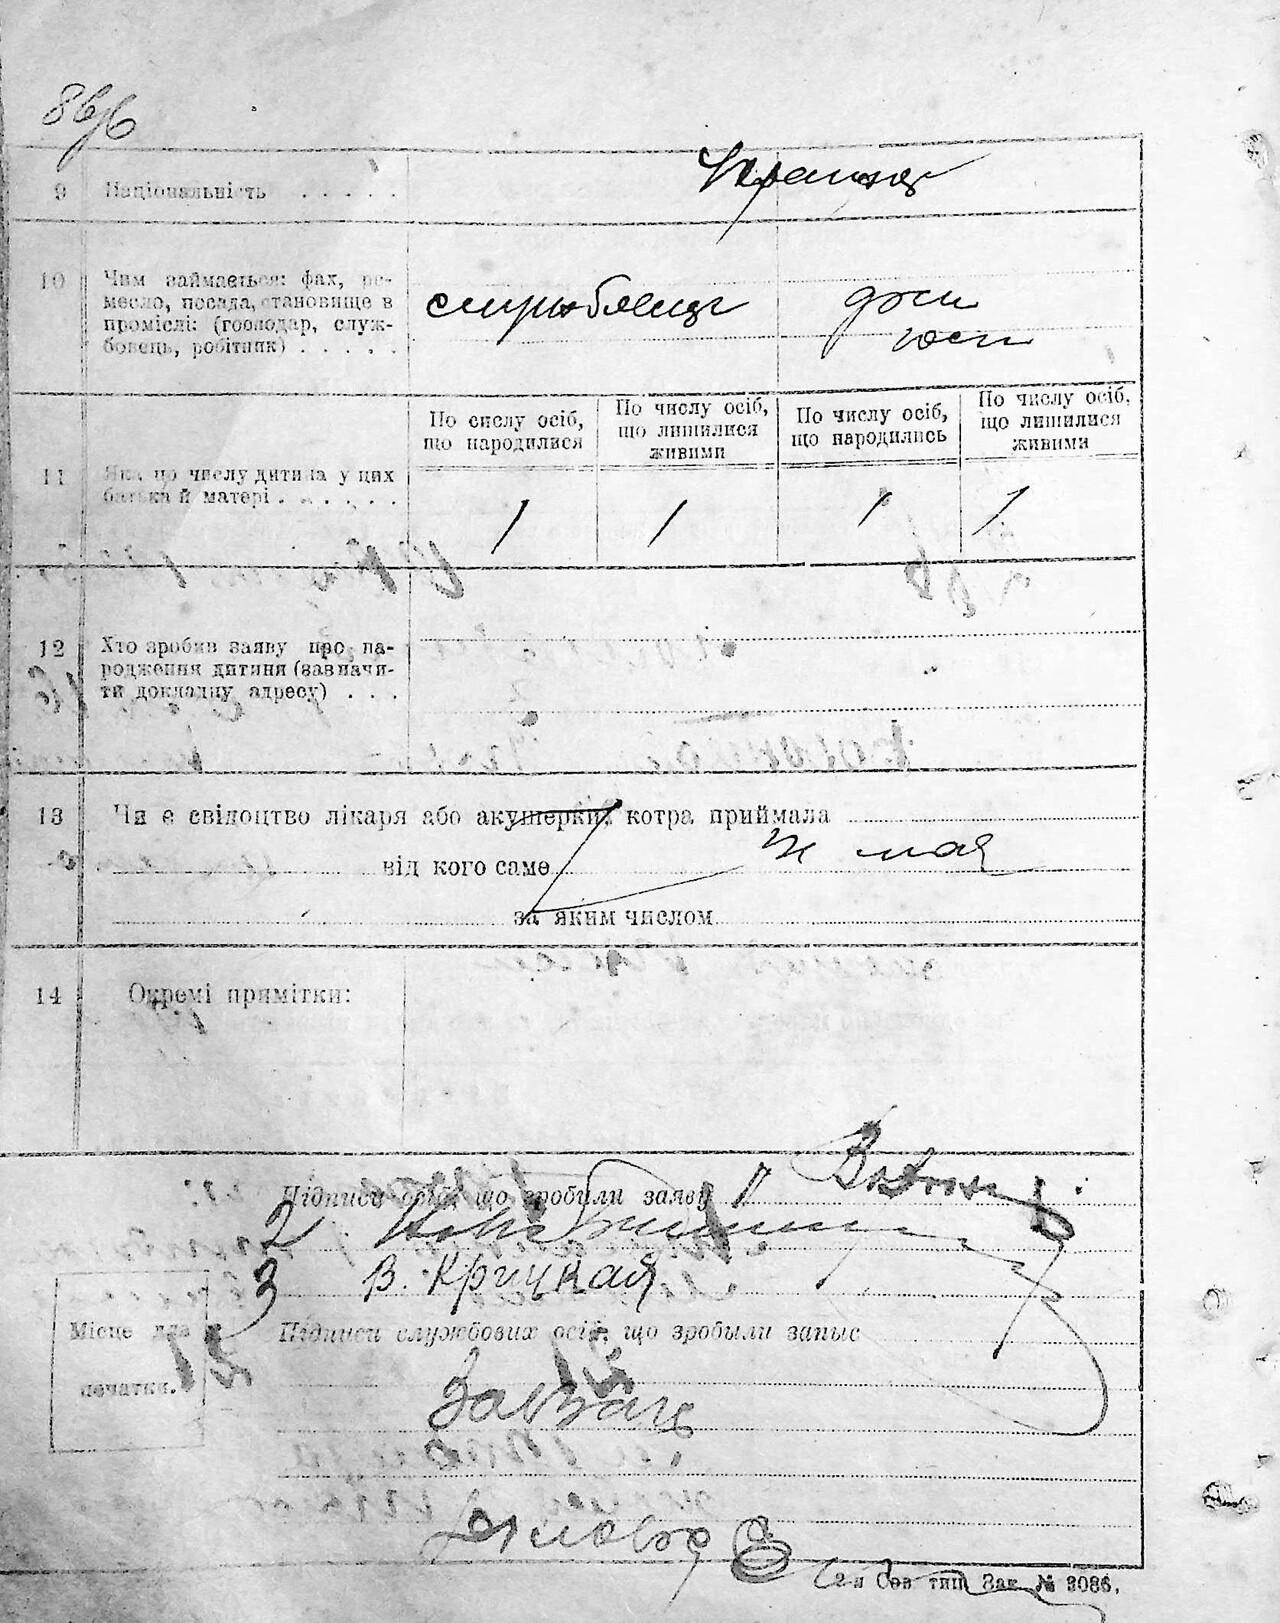 9 Національність . . . . .
10 Чим займається: фах, ре-
месло, посада, становище в
проміслі: (господар, служ-
бовець, робітник) . . . . .
дом
госп
По числу осіб,
що народилися
По числу осіб,
що лишилися
живими
По числу осіб,
що народились
По числу осіб,
що лишилися
живими
11 Яка по числу дитина у цих
батька й матері . . . . . .
1 1 1 1
12 Хто зробив заяву про на-
родження дитини (зазначи-
ти докладну адресу) . . .
13 Чи є свідоцтво лікаря або акушерки, котра приймала
від кого саме
за яким числом
14 Окремі примітки:
Підписи осіб, що зробили заяву 1
2
3 В. Крицкая
Місце для
печатки.
Підписи службових осіб, що зробыли запыс
Завзагс
2-я Сов тип Зак. № 3086.